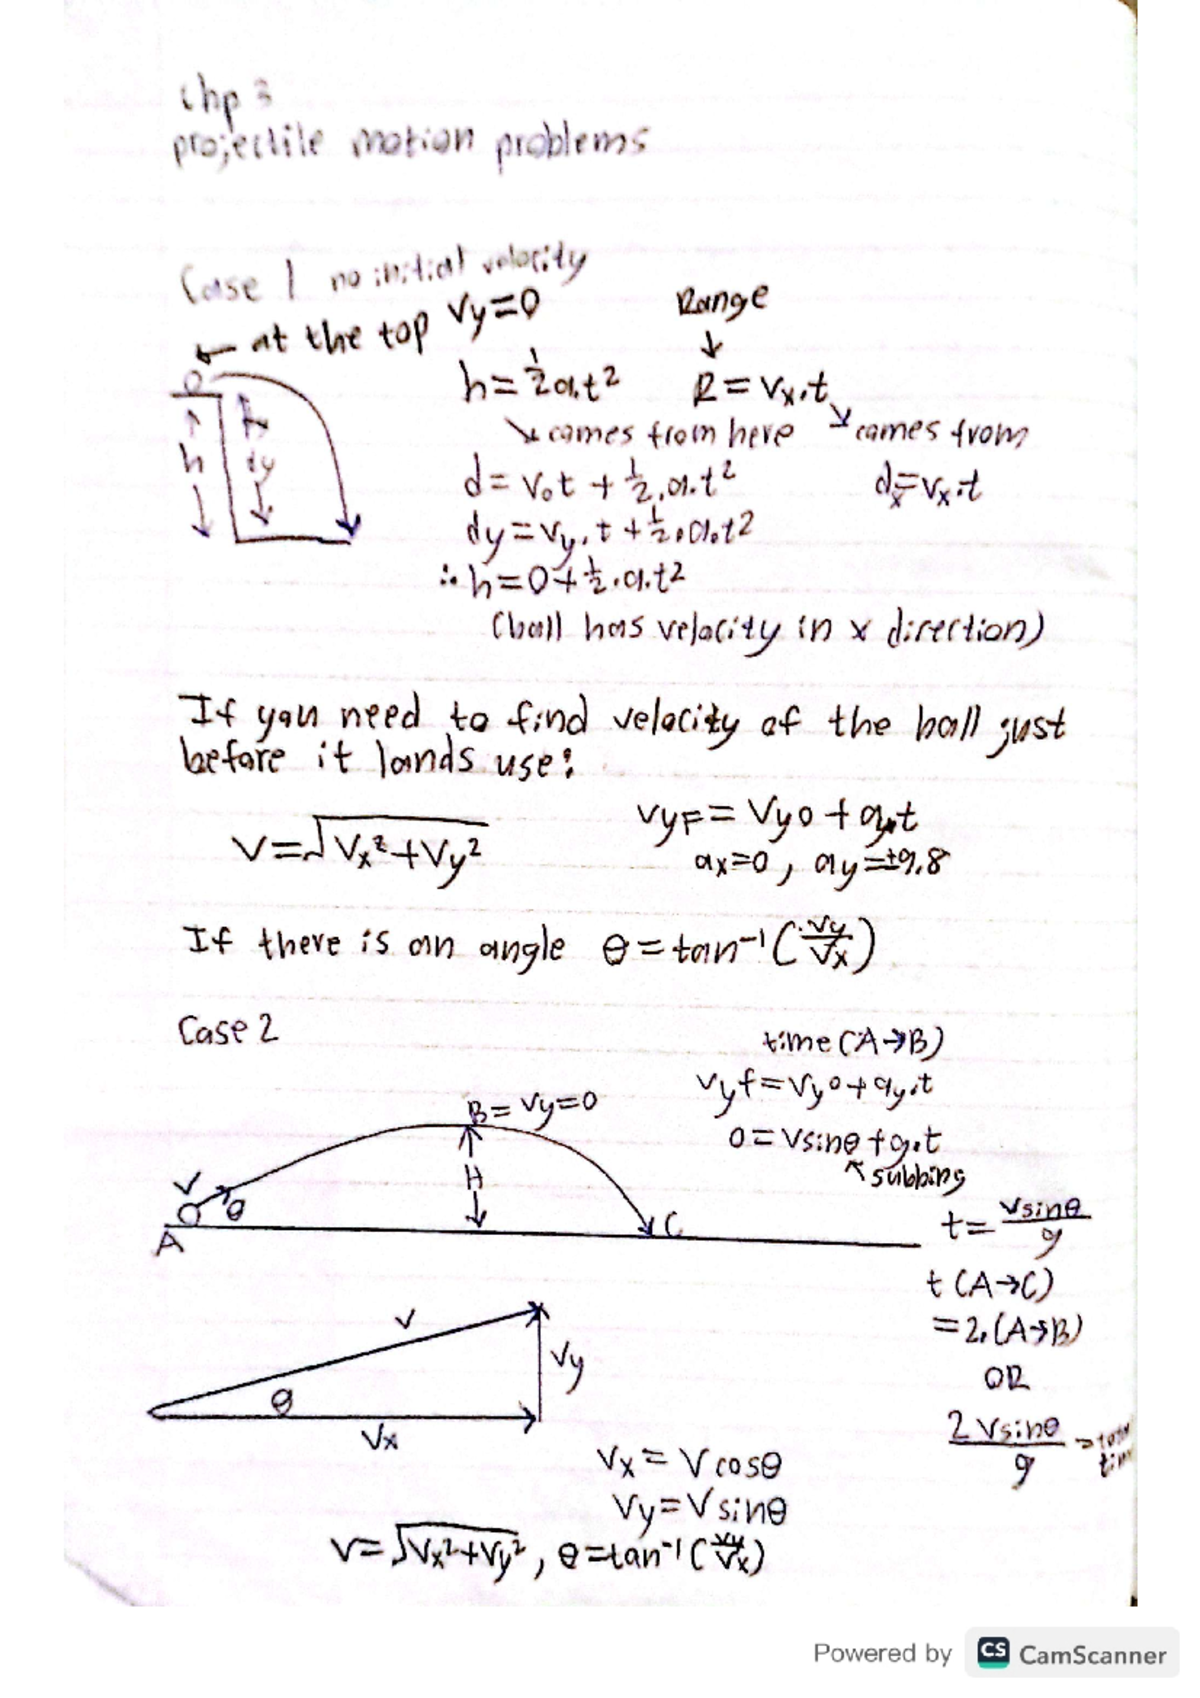 Chp 3
projectile motion problems
Case 1 no initial velocity
← at the top Vy=0
Range
↓
h=½a.t² R=Vx.t
↘ comes from here ↘ comes from
h dy
d=V₀t+½.a.t² dx=Vx.t
dy=Vy.t+½.a.t²
∴h=0+½.a.t²
(ball has velocity in x direction)
If you need to find velocity of the ball just
before it lands use:
V=√Vx²+Vy² VyF=Vyo+ay.t
ax=0, ay=±9.8
If there is an angle θ=tan⁻¹(Vy/Vx)
Case 2
time(A→B)
Vyf=Vyo+ay.t
B=Vy=0
0=Vsinθ+g.t
↖subbing
H
V θ
A C
t=Vsinθ/g
t(A→C)
=2.(A→B)
OR
2Vsinθ/g
V
Vy
θ
Vx
Vx=Vcosθ
Vy=Vsinθ
V=√Vx²+Vy², θ=tan⁻¹(Vy/Vx)
Powered by CS CamScanner